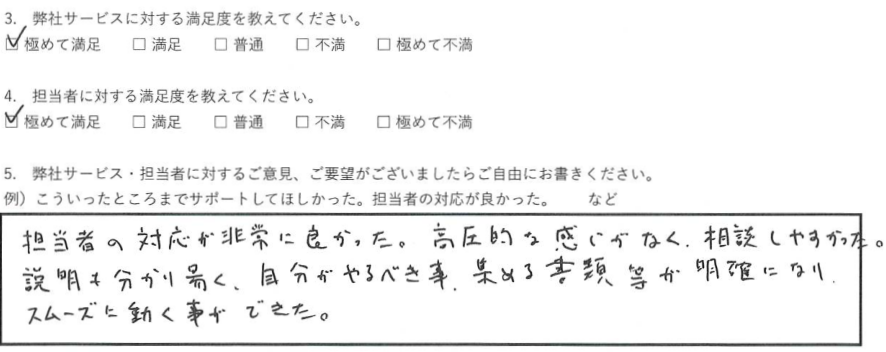 3. 弊社サービスに対する満足度を教えてください。
☑ 極めて満足 □ 満足 □ 普通 □ 不満 □ 極めて不満
4. 担当者に対する満足度を教えてください。
☑ 極めて満足 □ 満足 □ 普通 □ 不満 □ 極めて不満
5. 弊社サービス・担当者に対するご意見、ご要望がございましたらご自由にお書きください。
例）こういったところまでサポートしてほしかった。担当者の対応が良かった。 など
担当者の対応が非常に良かった。高圧的な感じがなく、相談しやすかった。
説明も分かり易く、自分がやるべき事、集める書類等が明確になり、
スムーズに動く事ができた。